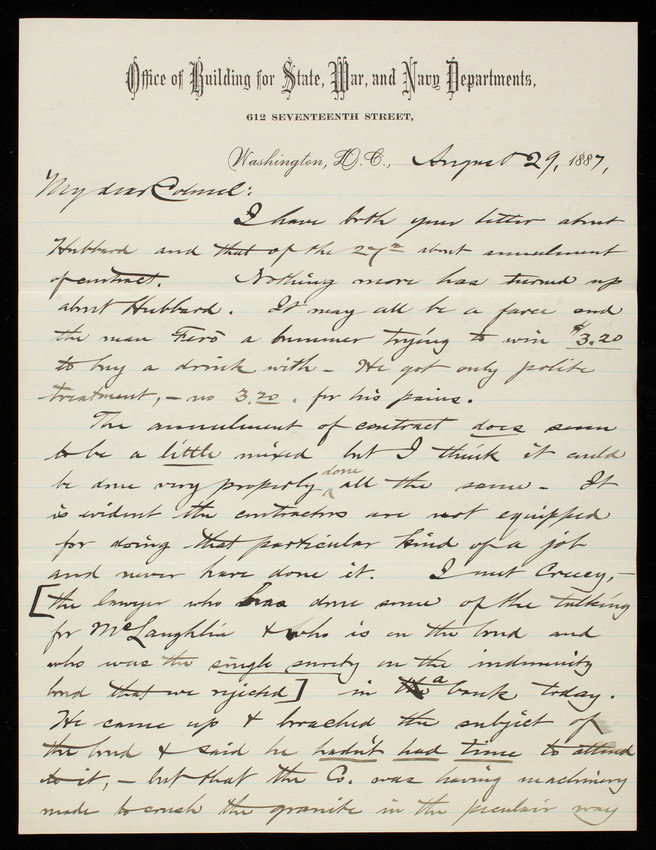 Office of Building for State, War, and Navy Departments,
612 SEVENTEENTH STREET,
Washington, D.C., August 29, 1887,
My dear Colonel:
I have both your letters about
Hubbard and that of the 27th about annulment
of contract. Nothing more has turned up
about Hubbard. It may all be a farce and
the man a bummer trying to win $3.20
to buy a drink with - He got only polite
treatment, - no 3.20. for his pains.
The annulment of contract does seem
to be a little mixed but I think it could
be done very properly done all the same - It
is evident the contractors are not equipped
for doing that particular kind of a job
and never have done it. I met Creecy, -
[the lawyer who has done some of the talking
for McLaughlin & who is on the bond and
who was the single surety on the indemnity
bond that we rejected] in a bank today.
He came up & broached the subject of
the bond & said he hadn't had time to attend
to it, - but that the Co. was having machinery
made to crush the granite in the peculiar way